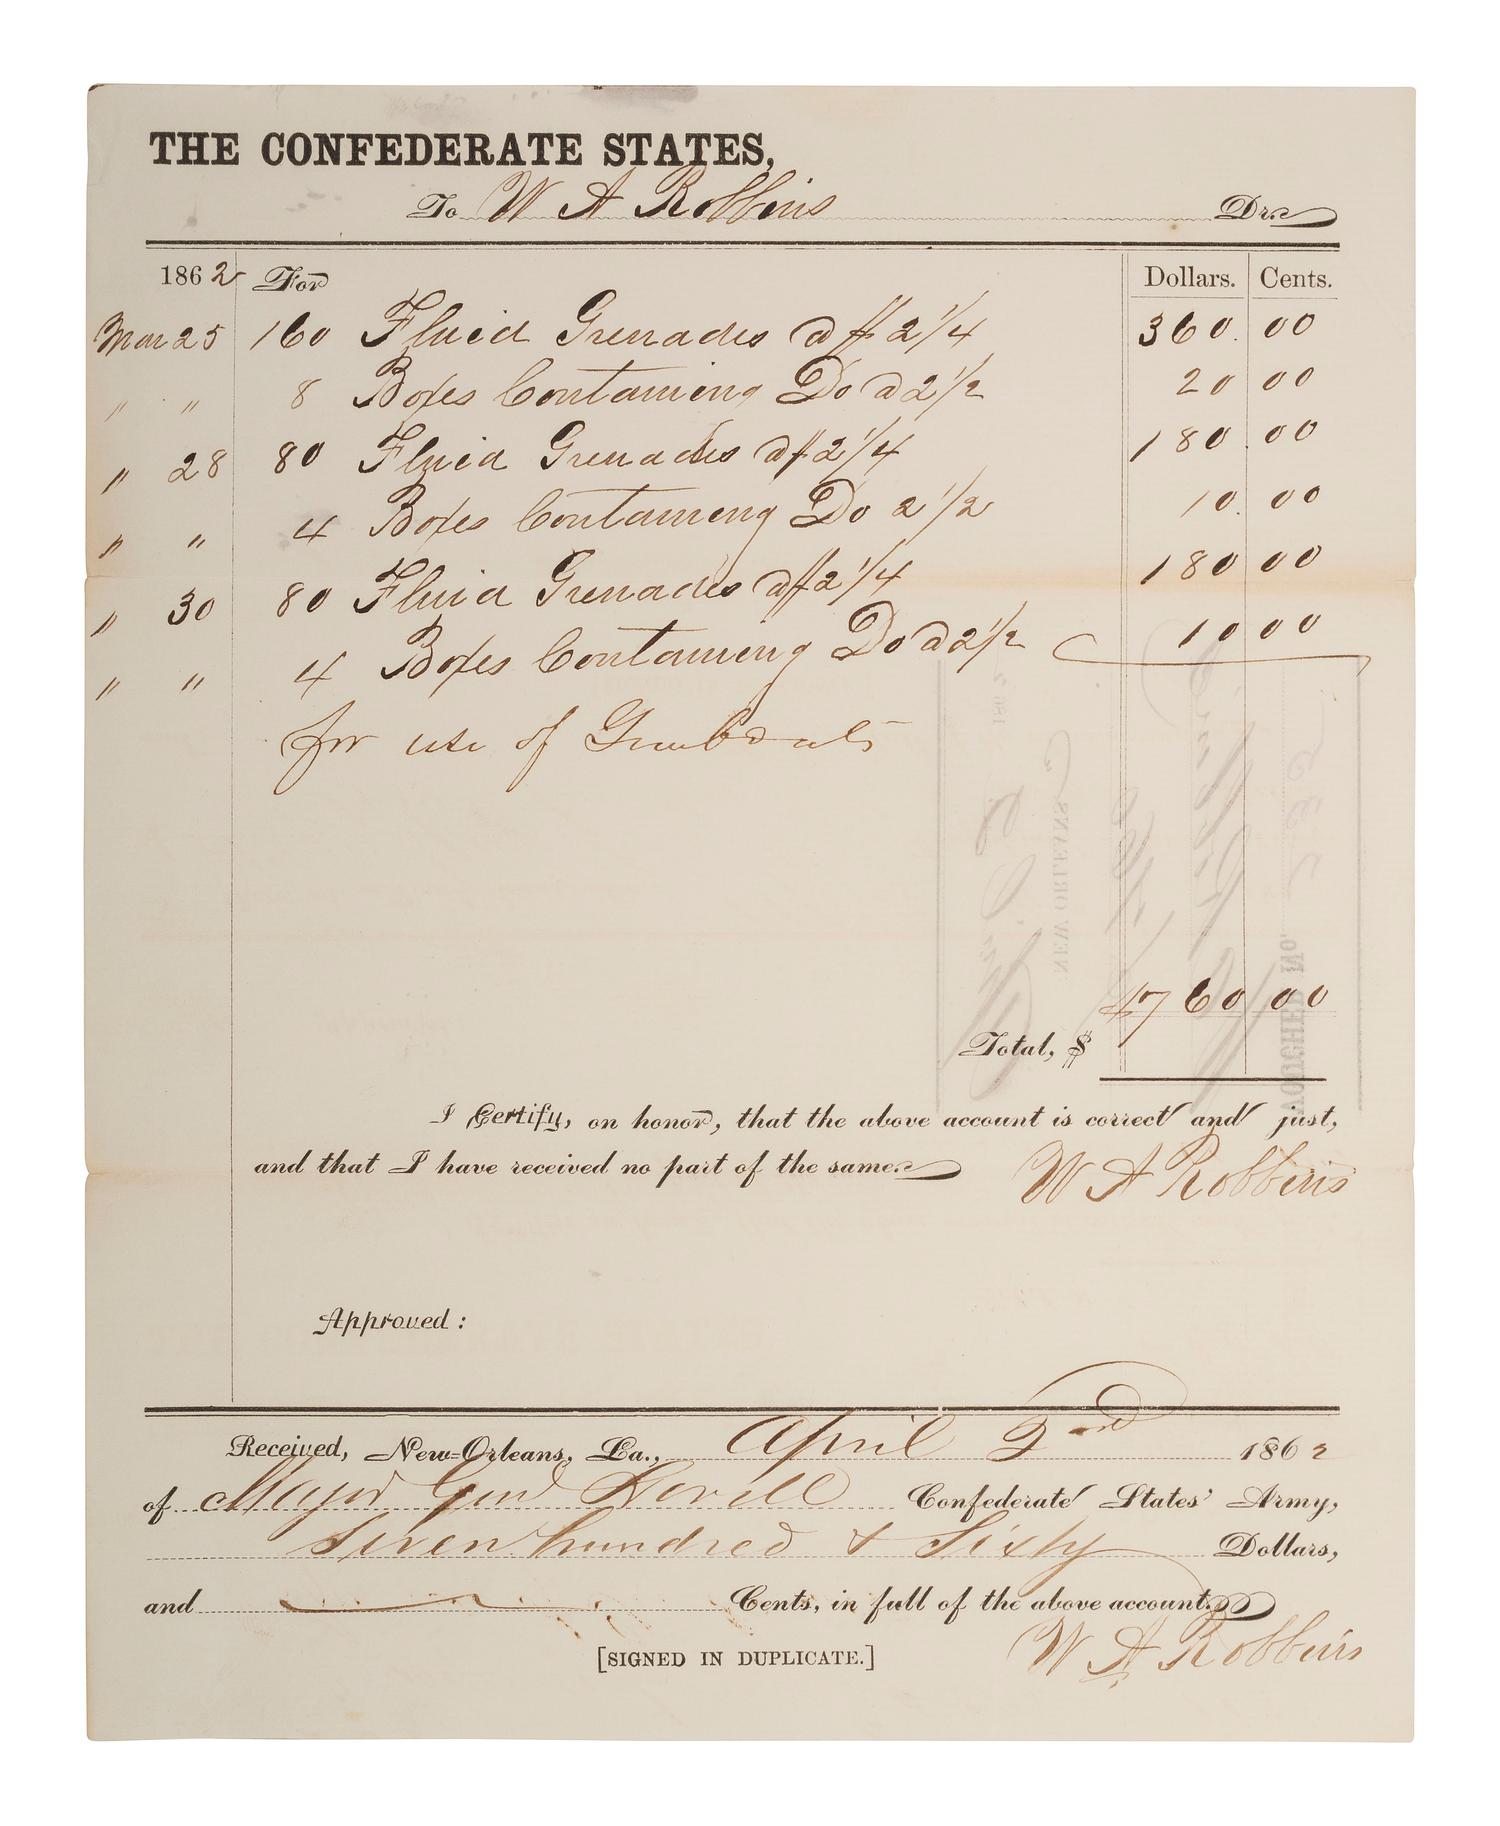 THE CONFEDERATE STATES,
To W A Robbins Dr.
1862 For Dollars. Cents.
Mar 25 160 Fluid Grenades a $ 2 1/4 360. 00
" " 8 Boxes Containing Do a 2 1/2 20 00
" 28 80 Fluid Grenades a $ 2 1/4 180.00
" " 4 Boxes Containing Do 2 1/2 10. 00
" 30 80 Fluid Grenades a $ 2 1/4 180 00
" " 4 Boxes Containing Do a 2 1/2 10 00
for use of Gunboats
$760 00
Total, $
I Certify, on honor, that the above account is correct and just,
and that I have received no part of the same.
W A Robbins
Approved:
Received, New-Orleans, La., April 2nd 1862
of Major Genl Lovell Confederate States' Army,
Seven hundred & Sixty Dollars,
and Cents, in full of the above account.
W A Robbins
[SIGNED IN DUPLICATE.]
VOUCHER No.
NEW ORLEANS
1862